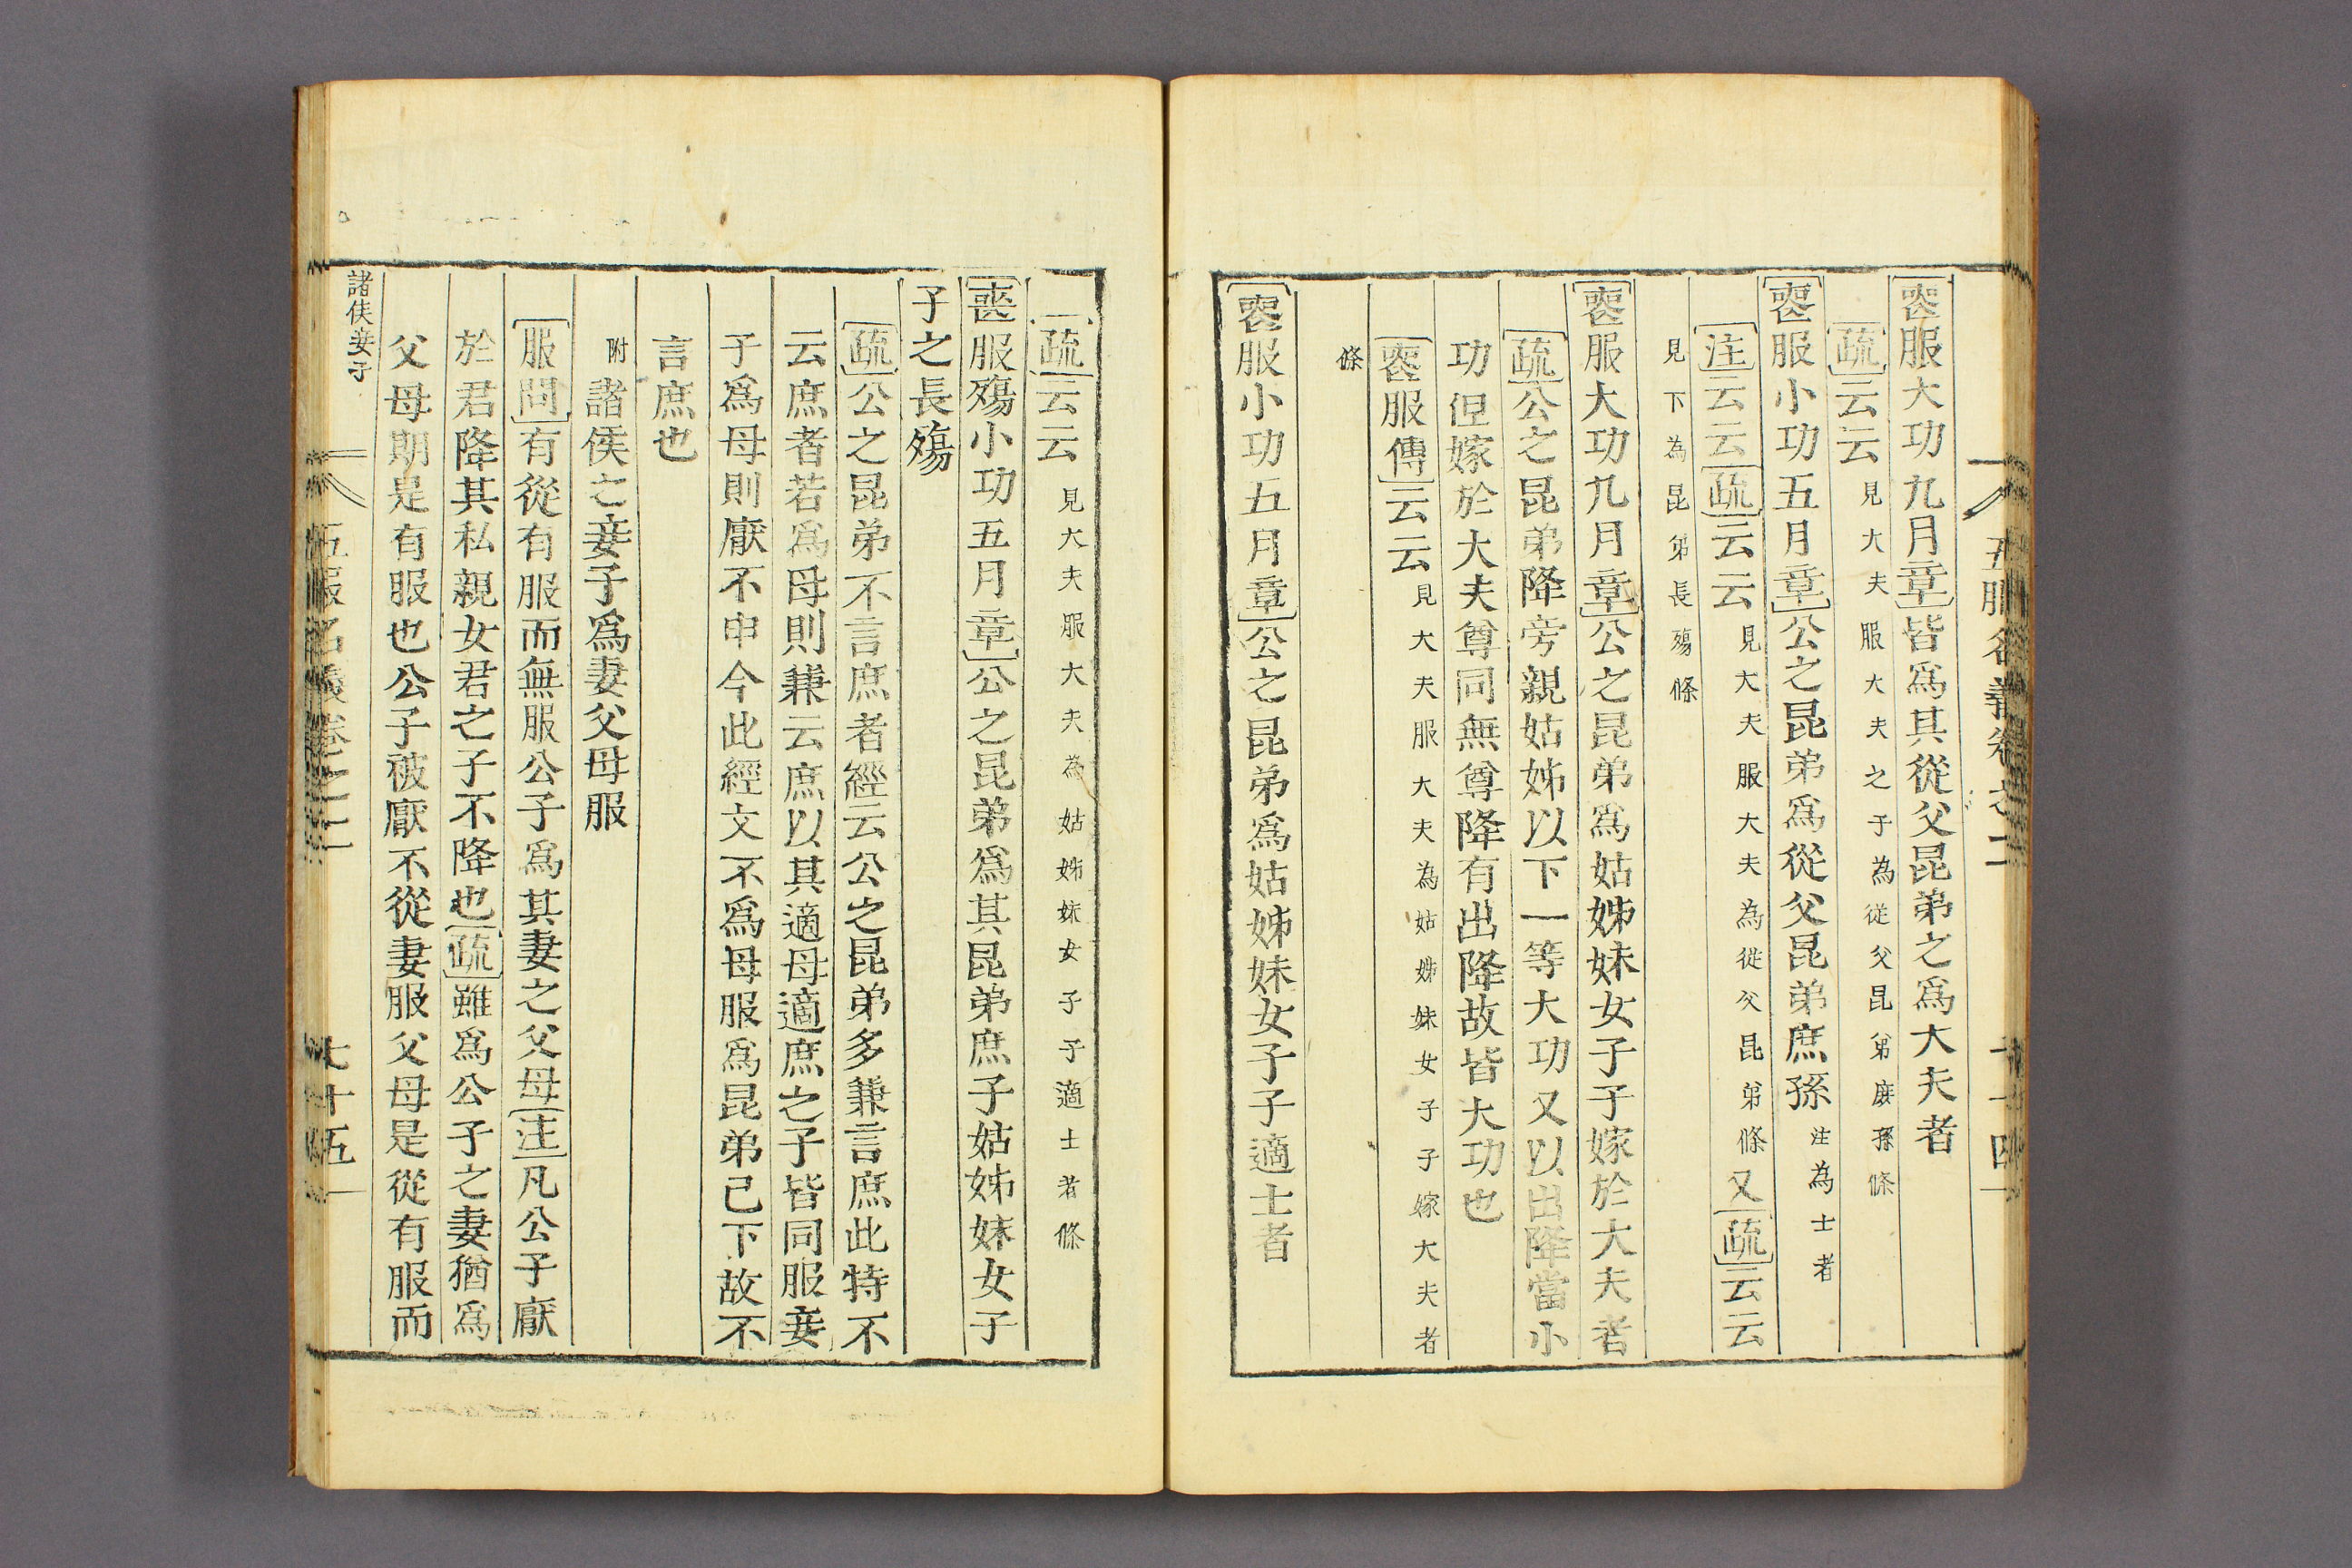 五服名義卷之二
七十四
喪服大功九月章皆爲其從父昆弟之爲大夫者
疏云云見大夫服大夫之子為從父昆弟庶孫條
喪服小功五月章公之昆弟爲從父昆弟庶孫注為士者
注云云疏云云見大夫服大夫為從父昆弟條又疏云云
見下為昆弟長殤條
喪服大功九月章公之昆弟爲姑姊妹女子子嫁於大夫者
疏公之昆弟降旁親姑姊以下一等大功又以出降當小
功但嫁於大夫尊同無尊降有出降故皆大功也
喪服傳云云見大夫服大夫為姑姊妹女子子嫁大夫者
條
喪服小功五月章公之昆弟爲姑姊妹女子子適士者
疏云云見大夫服大夫為姑姊妹女子子適士者條
喪服殤小功五月章公之昆弟爲其昆弟庶子姑姊妹女子
子之長殤
疏公之昆弟不言庶者經云公之昆弟多兼言庶此特不
云庶者若爲母則兼云庶以其適母適庶之子皆同服妾
子爲母則厭不申今此經文不爲母服爲昆弟己下故不
言庶也
附諸侯之妾子爲妻父母服
服問有從有服而無服公子爲其妻之父母注凡公子厭
於君降其私親女君之子不降也疏雖爲公子之妻猶爲
父母期是有服也公子被厭不從妻服父母是從有服而
諸侯妾子
五服名義卷之二
七十五